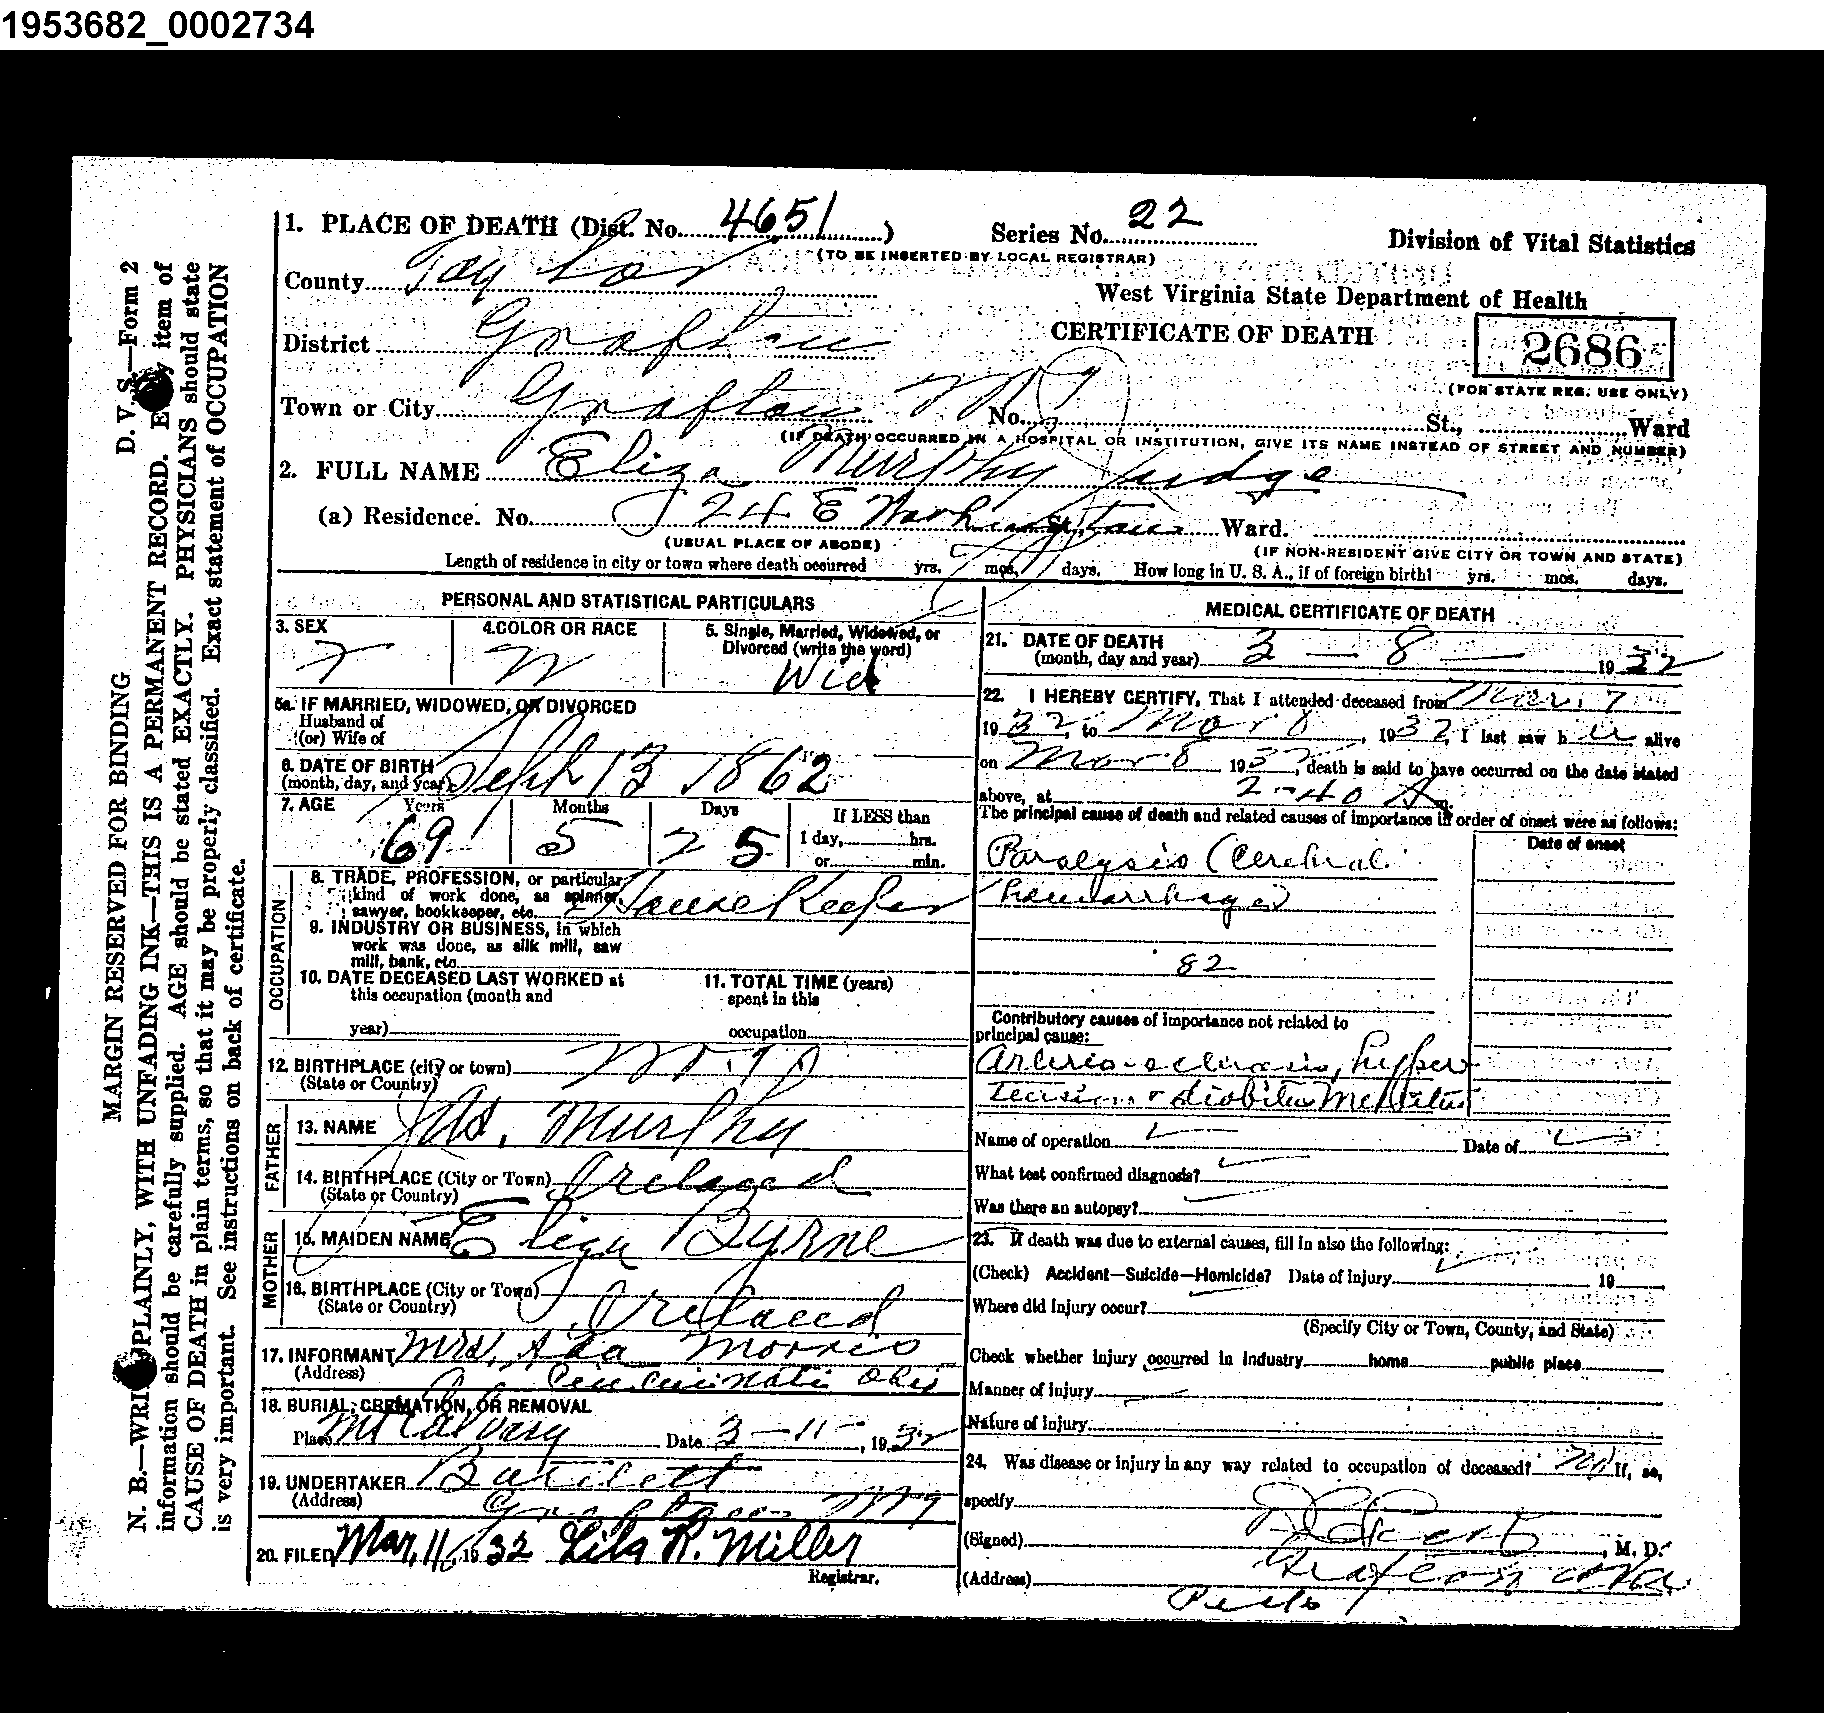 1953682_0002734
1. PLACE OF DEATH (Dist. No. 4651)
Series No. 22
(TO BE INSERTED BY LOCAL REGISTRAR)
Division of Vital Statistics
County Taylor
West Virginia State Department of Health
District Grafton
CERTIFICATE OF DEATH
2686
(FOR STATE REG. USE ONLY)
Town or City Grafton No. St., Ward
(IF DEATH OCCURRED IN A HOSPITAL OR INSTITUTION, GIVE ITS NAME INSTEAD OF STREET AND NUMBER)
2. FULL NAME Eliza Murphy Judge
(a) Residence. No. 24 E Washington St., Ward.
(USUAL PLACE OF ABODE)
(IF NON-RESIDENT GIVE CITY OR TOWN AND STATE)
Length of residence in city or town where death occurred yrs. mos. days. How long in U. S. A., if of foreign birth? yrs. mos. days.
PERSONAL AND STATISTICAL PARTICULARS
3. SEX
F
4. COLOR OR RACE
W
5. Single, Married, Widowed, or
Divorced (write the word)
Wid
5a. IF MARRIED, WIDOWED, OR DIVORCED
Husband of
(or) Wife of
6. DATE OF BIRTH
(month, day, and year) Sept 13 1862
7. AGE Years Months Days
69 5 25
If LESS than
1 day, hrs.
or min.
OCCUPATION
8. TRADE, PROFESSION, or particular
kind of work done, as spinner,
sawyer, bookkeeper, etc. House Keeper
9. INDUSTRY OR BUSINESS, in which
work was done, as silk mill, saw
mill, bank, etc.
10. DATE DECEASED LAST WORKED at
this occupation (month and
year)
11. TOTAL TIME (years)
spent in this
occupation
12. BIRTHPLACE (city or town) W. Va
(State or Country)
FATHER
13. NAME Jas. Murphy
14. BIRTHPLACE (City or Town) Ireland
(State or Country)
MOTHER
15. MAIDEN NAME Eliza Byrne
16. BIRTHPLACE (City or Town) Ireland
(State or Country)
17. INFORMANT Mrs. Ada Morris
(Address) Cincinnati Ohio
18. BURIAL, CREMATION, OR REMOVAL
Place Mt Calvary Date 3-11-, 1932
19. UNDERTAKER Bartlett
(Address) Grafton
20. FILED Mar, 11, 1932 Lila R. Miller
Registrar.
MEDICAL CERTIFICATE OF DEATH
21. DATE OF DEATH
(month, day and year) 3 - 8 - 1932
22. I HEREBY CERTIFY, That I attended deceased from Mar. 7
1932, to Mar 8, 1932, I last saw her alive
on Mar 8 1932, death is said to have occurred on the date stated
above, at 2-40 A m.
The principal cause of death and related causes of importance in order of onset were as follows:
Date of onset
Paralysis (Cerebral
hemorrhage)
82
Contributory causes of importance not related to
principal cause:
Arterio-sclerosis, hyper
tension & diabitus Mellitus
Name of operation Date of
What test confirmed diagnosis?
Was there an autopsy?
23. If death was due to external causes, fill in also the following:
(Check) Accident—Suicide—Homicide? Date of injury 19
Where did injury occur?
(Specify City or Town, County, and State)
Check whether injury occurred in industry home public place
Manner of injury
Nature of injury
24. Was disease or injury in any way related to occupation of deceased? No If, so,
specify
(Signed) , M. D.
(Address) Grafton W Va
MARGIN RESERVED FOR BINDING D. V. S.—Form 2
N. B.—WRITE PLAINLY, WITH UNFADING INK—THIS IS A PERMANENT RECORD. Every item of
information should be carefully supplied. AGE should be stated EXACTLY. PHYSICIANS should state
CAUSE OF DEATH in plain terms, so that it may be properly classified. Exact statement of OCCUPATION
is very important. See instructions on back of certificate.